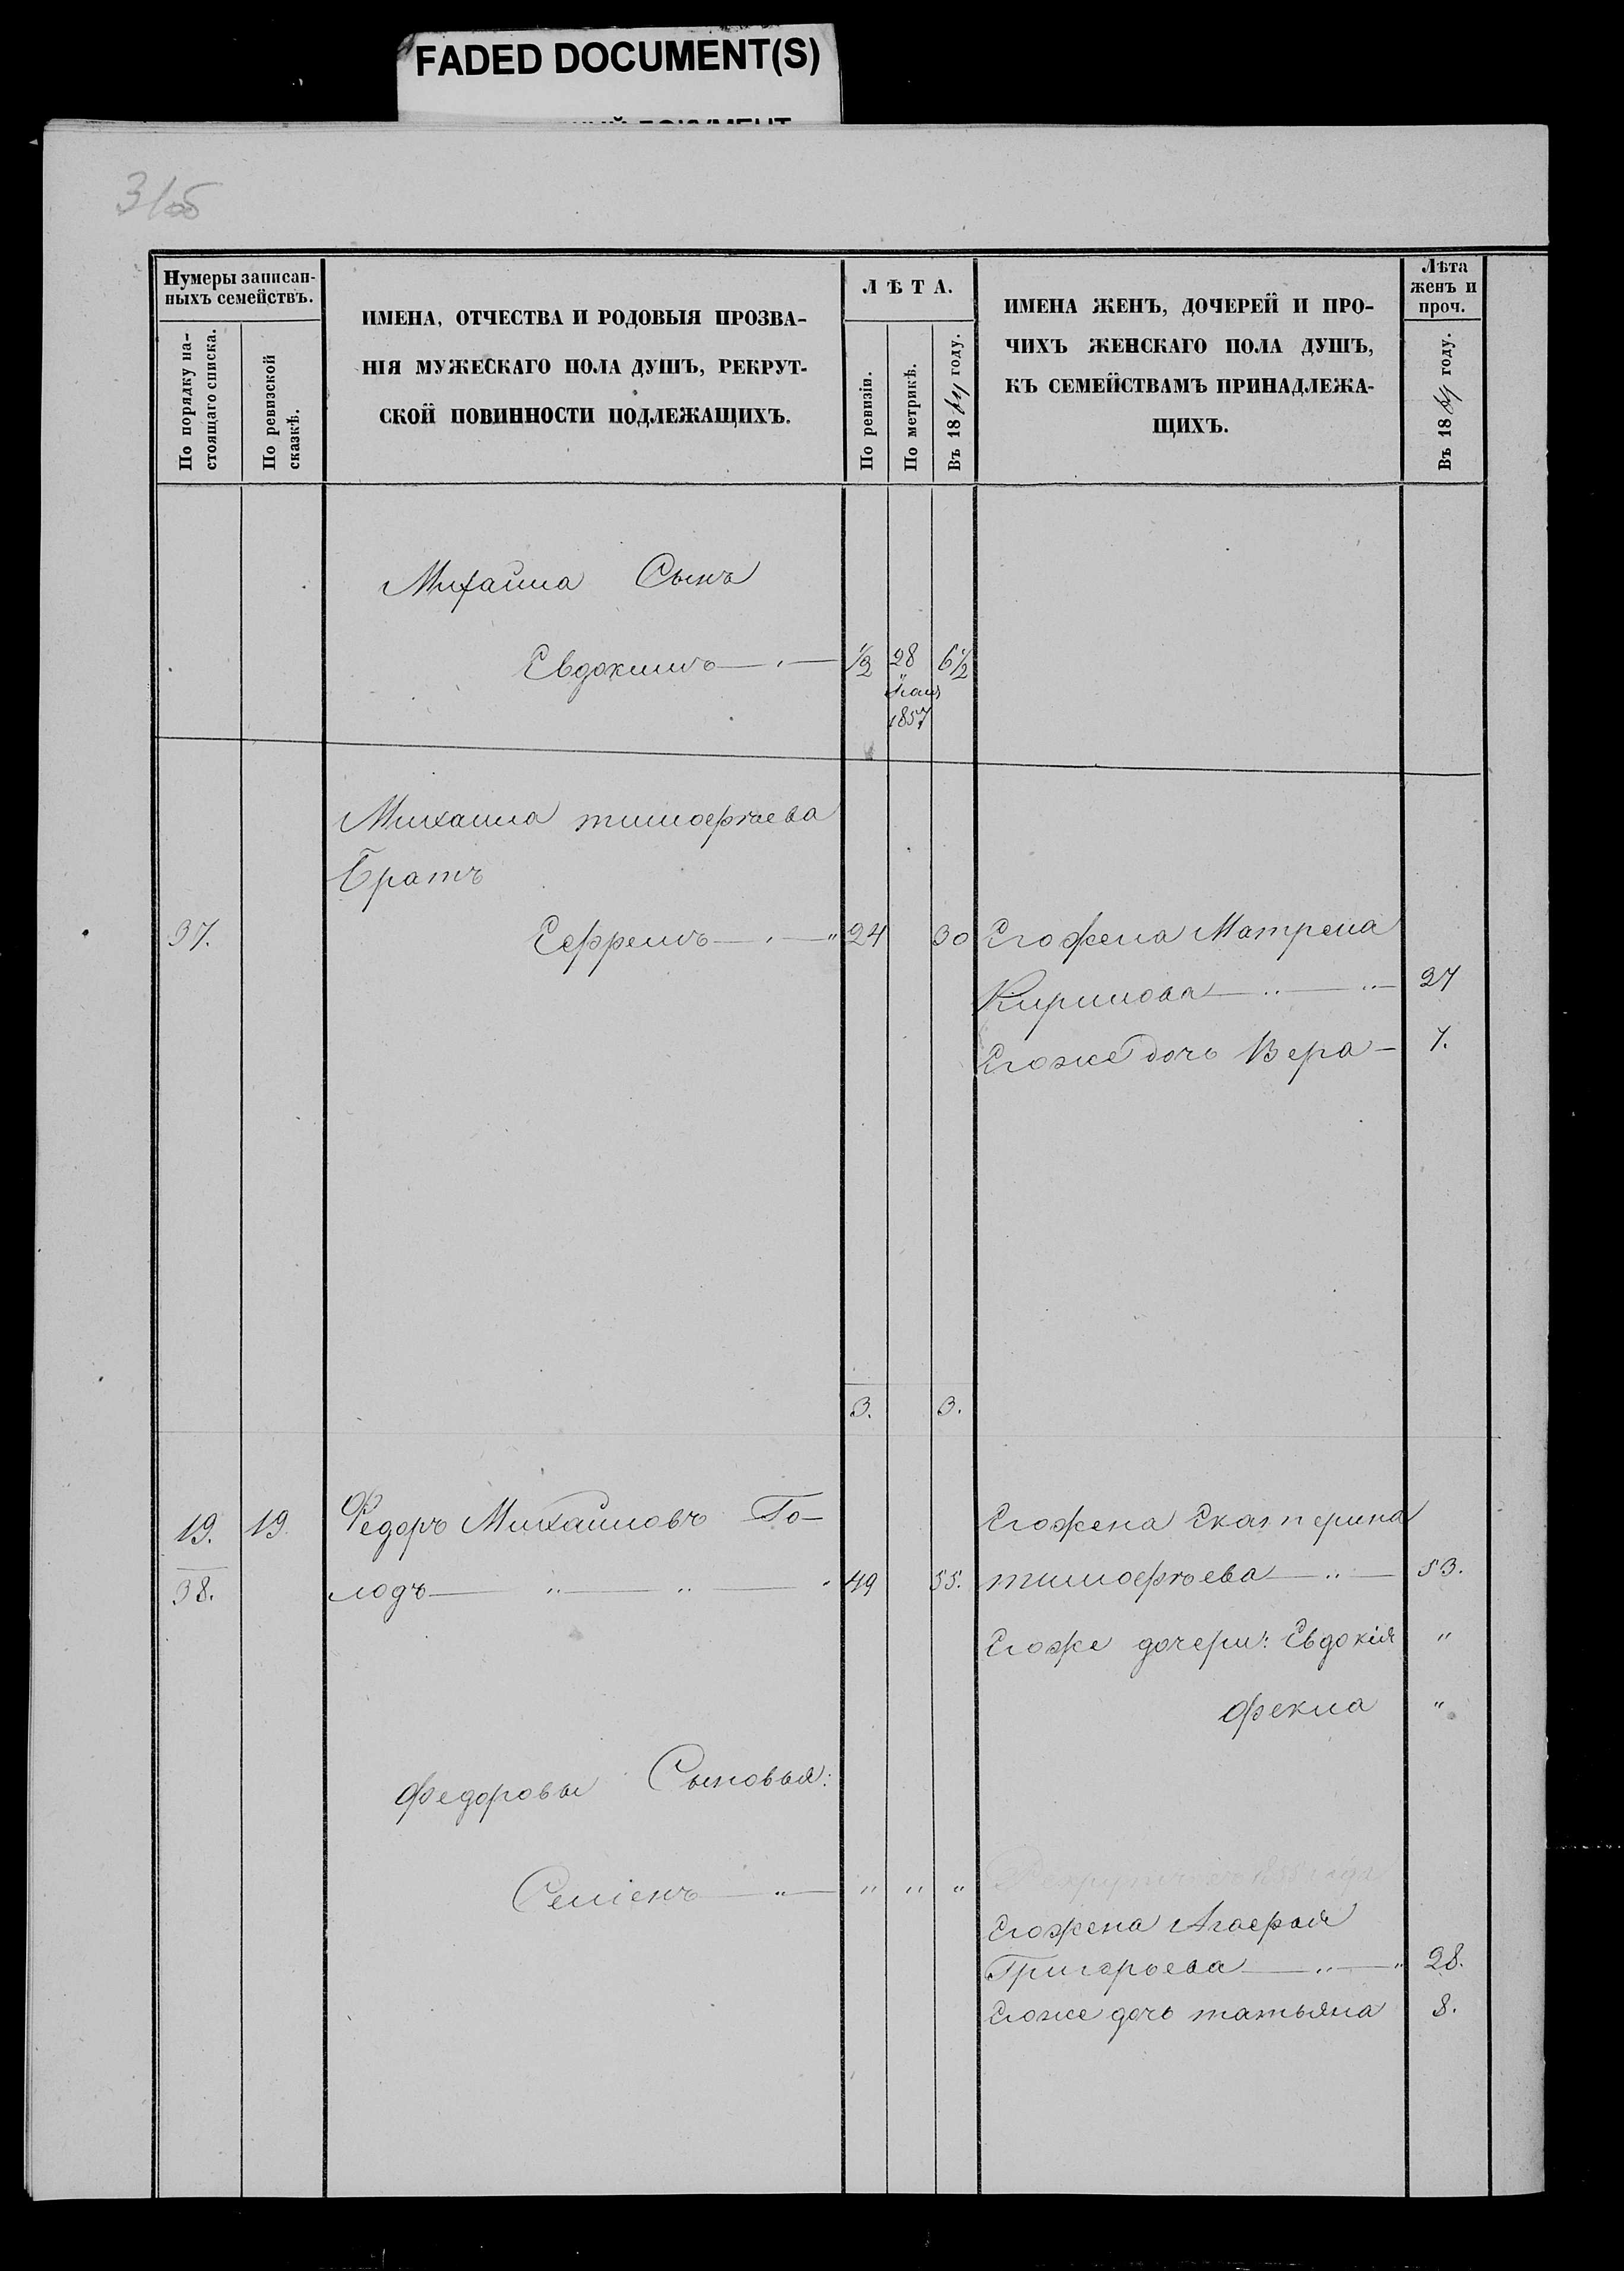 FADED DOCUMENT(S)
3/об
Нумеры записан-
ныхъ семействъ.
По порядку на-
стоящаго списка.
По ревизской
сказкѣ.
ИМЕНА, ОТЧЕСТВА И РОДОВЫЯ ПРОЗВА-
НІЯ МУЖЕСКАГО ПОЛА ДУШЪ, РЕКРУТ-
СКОЙ ПОВИННОСТИ ПОДЛЕЖАЩИХЪ.
ЛѢТА.
По ревизіи.
По метрикѣ.
Въ 18 году.
ИМЕНА ЖЕНЪ, ДОЧЕРЕЙ И ПРО-
ЧИХЪ ЖЕНСКАГО ПОЛА ДУШЪ,
КЪ СЕМЕЙСТВАМЪ ПРИНАДЛЕЖА-
ЩИХЪ.
Лѣта
женъ и
проч.
Въ 18 году.
Михаила Сынъ
Евдокимъ — 1/2 28 6 1/2
1857
Михаила тимофѣева
Братъ
37. Ефремъ — " 24 30 Его жена Матрена
Кирилова — 27
Егоже дочь Вера — 7.
3. 3.
19. 19. Федоръ Михайловъ Го- Его жена Екатерина
38. лодъ — " — " — " 49 55. тимофѣева — " — 53.
Егоже дочери: Евдокія "
Фекла "
Федоровы Сыновья:
Семенъ — " — " " "
Его жена Агафья
Григорьева — " — " 28.
Егоже дочь татьяна 8.